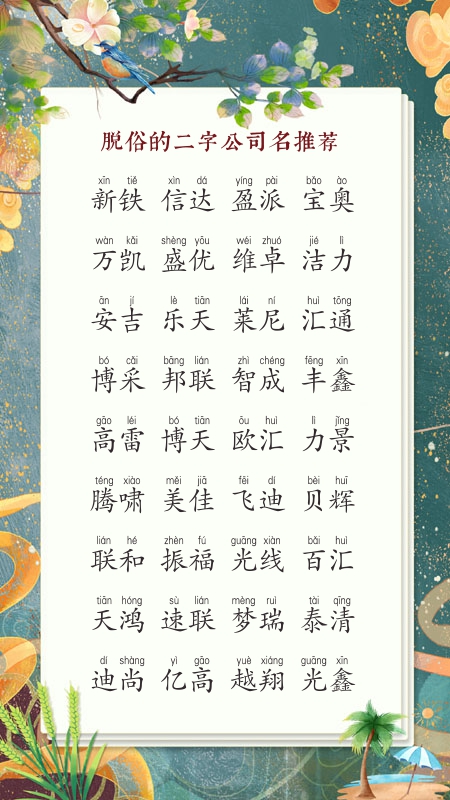 脱俗的二字公司名推荐
xīn tiě xìn dá yíng pài bǎo ào
新铁 信达 盈派 宝奥
wàn kǎi shèng yōu wéi zhuó jié lì
万凯 盛优 维卓 洁力
ān jí lè tiān lái ní huì tōng
安吉 乐天 莱尼 汇通
bó cǎi bāng lián zhì chéng fēng xīn
博采 邦联 智成 丰鑫
gāo léi bó tiān ōu huì lì jǐng
高雷 博天 欧汇 力景
téng xiào měi jiā fēi dí bèi huī
腾啸 美佳 飞迪 贝辉
lián hé zhèn fú guāng xiàn bǎi huì
联和 振福 光线 百汇
tiān hóng sù lián mèng ruì tài qīng
天鸿 速联 梦瑞 泰清
dí shàng yì gāo yuè xiáng guāng xīn
迪尚 亿高 越翔 光鑫